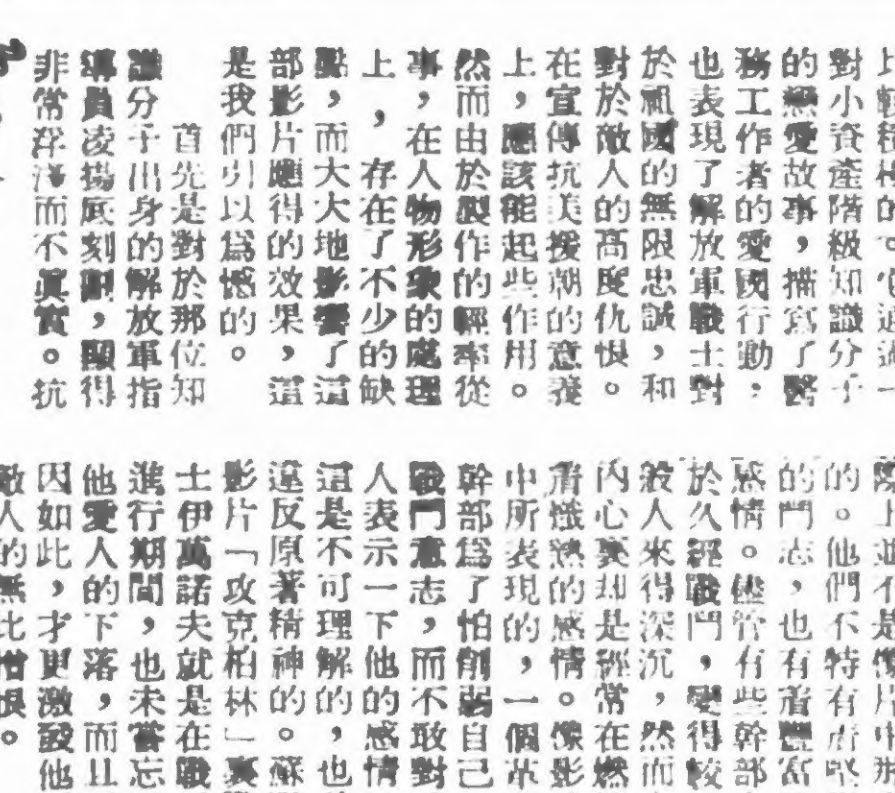 對小資產階級知識分子
的戀愛故事，描寫了醫
務工作者的愛國行動，
也表現了解放軍戰士對
於祖國的無限忠誠，和
對於敵人的高度仇恨。
在宣傳抗美援朝的意義
上，應該能起些作用。
然而由於製作的輕率從
事，在人物形象的處理
上，存在了不少的缺
點，而大大地影響了這
部影片應得的效果，這
是我們引以爲憾的。
首先是對於那位知
識分子出身的解放軍指
導員凌揚底刻劃，顯得
非常浮淺而不眞實。抗
際上並不是像片中那
的。他們不特有着堅
的鬥志，也有着豐富
感情。儘管有些幹部
於久經戰鬥，變得較
般人來得深沉，然而
內心裏却是經常在燃
着熾熱的感情。像影
中所表現的，一個革
幹部爲了怕削弱自己
戰鬥意志，而不敢對
人表示一下他的感情
這是不可理解的，也
違反原著精神的。蘇
影片「攻克柏林」裏
士伊萬諾夫就是在戰
進行期間，也未嘗忘
他愛人的下落，而且
因如此，才更激發他
敵人的無比憎恨。